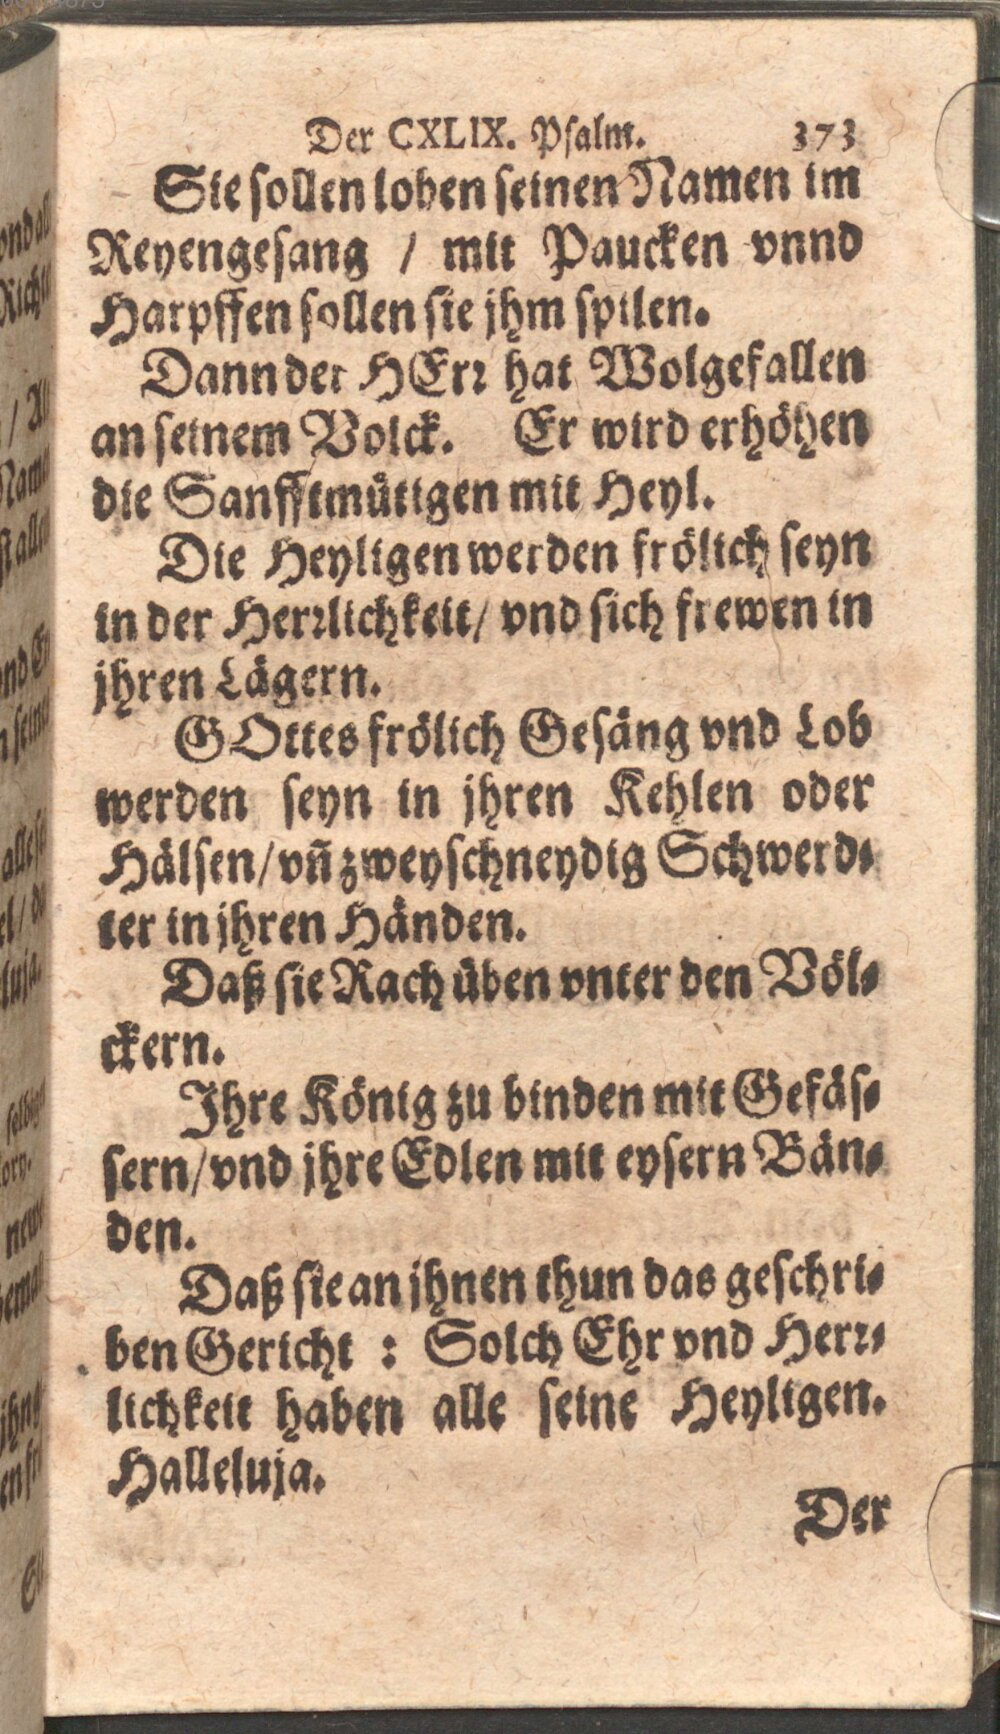 Der CXLIX. Psalm. 373
Sie sollen loben seinen Namen im
Reyengesang / mit Paucken vnnd
Harpffen sollen sie jhm spilen.
Dann der HErr hat Wolgefallen
an seinem Volck. Er wird erhöhen
die Sanfftmütigen mit Heyl.
Die Heyligen werden frölich seyn
in der Herrlichkeit/ vnd sich frewen in
jhren Lägern.
GOttes frölich Gesäng vnd Lob
werden seyn in jhren Kehlen oder
Hälsen/vñ zweyschneydig Schwerd-
ter in jhren Händen.
Daß sie Rach üben vnter den Völ-
ckern.
Ihre König zu binden mit Gefäs-
sern/vnd jhre Edlen mit eysern Bän-
den.
Daß sie an jhnen thun das geschri-
ben Gericht : Solch Ehr vnd Herr-
lichkeit haben alle seine Heyligen.
Halleluja.
Der